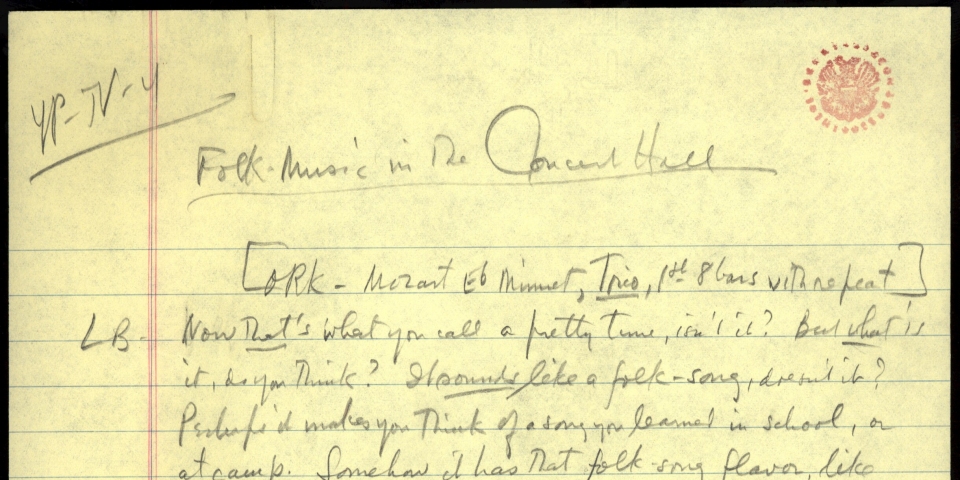 YP-TV-4
Folk-Music in the Concert Hall
[ORK - Mozart Eb Minuet, Trio, 1st 8 bars with repeat]
LB. Now that's what you call a pretty tune, isn't it? But what is
it, do you think? It sounds like a folk-song, doesn't it?
Perhaps it makes you think of a song you learned in school, or
at camp. Somehow it has that folk-song flavor, like